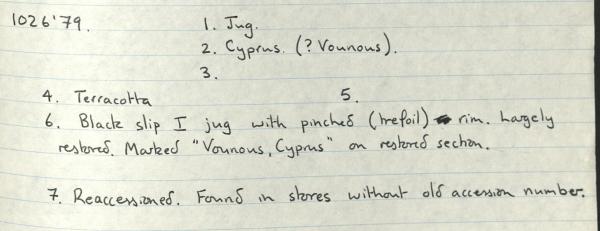 1026'79. 1. Jug.
2. Cyprus. (? Vounous).
3.
4. Terracotta 5.
6. Black slip I jug with pinched (trefoil) rim. Largely
restored. Marked "Vounous, Cyprus" on restored section.
7. Reaccessioned. Found in stores without old accession number.